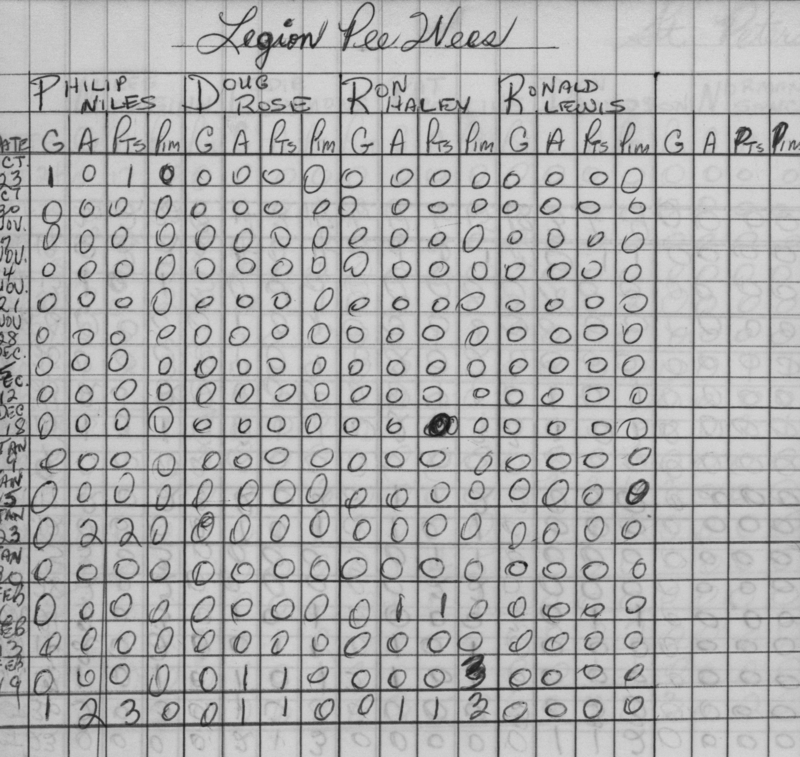 Legion Pee Wees
PHILIP DOUG RON RONALD
NILES ROSE HALEY LEWIS
ATE G A PTs PIM G A PTs PIM G A PTs PIM G A PTs PIM G A PTs PIM
CT.
23 1 0 1 0 0 0 0 0 0 0 0 0 0 0 0 0
CT
30 0 0 0 0 0 0 0 0 0 0 0 0 0 0 0 0
NOV.
7 0 0 0 0 0 0 0 0 0 0 0 0 0 0 0 0
NOV.
4 0 0 0 0 0 0 0 0 0 0 0 0 0 0 0 0
NOV.
21 0 0 0 0 0 0 0 0 0 0 0 0 0 0 0 0
NOV
28 0 0 0 0 0 0 0 0 0 0 0 0 0 0 0 0
DEC.
5 0 0 0 0 0 0 0 0 0 0 0 0 0 0 0 0
EC.
12 0 0 0 0 0 0 0 0 0 0 0 0 0 0 0 0
DEC
18 0 0 0 0 0 0 0 0 0 0 0 0 0 0 0 0
JAN
9 0 0 0 0 0 0 0 0 0 0 0 0 0 0 0 0
AN
5 0 0 0 0 0 0 0 0 0 0 0 0 0 0 0 0
JAN
23 0 2 2 0 0 0 0 0 0 0 0 0 0 0 0 0
AN
30 0 0 0 0 0 0 0 0 0 0 0 0 0 0 0 0
FEB
0 0 0 0 0 0 0 0 0 1 1 0 0 0 0 0
EB
13 0 0 0 0 0 0 0 0 0 0 0 0 0 0 0 0
FEB
19 0 0 0 0 0 1 1 0 0 0 0 3 0 0 0 0
1 2 3 0 0 1 1 0 0 1 1 3 0 0 0 0